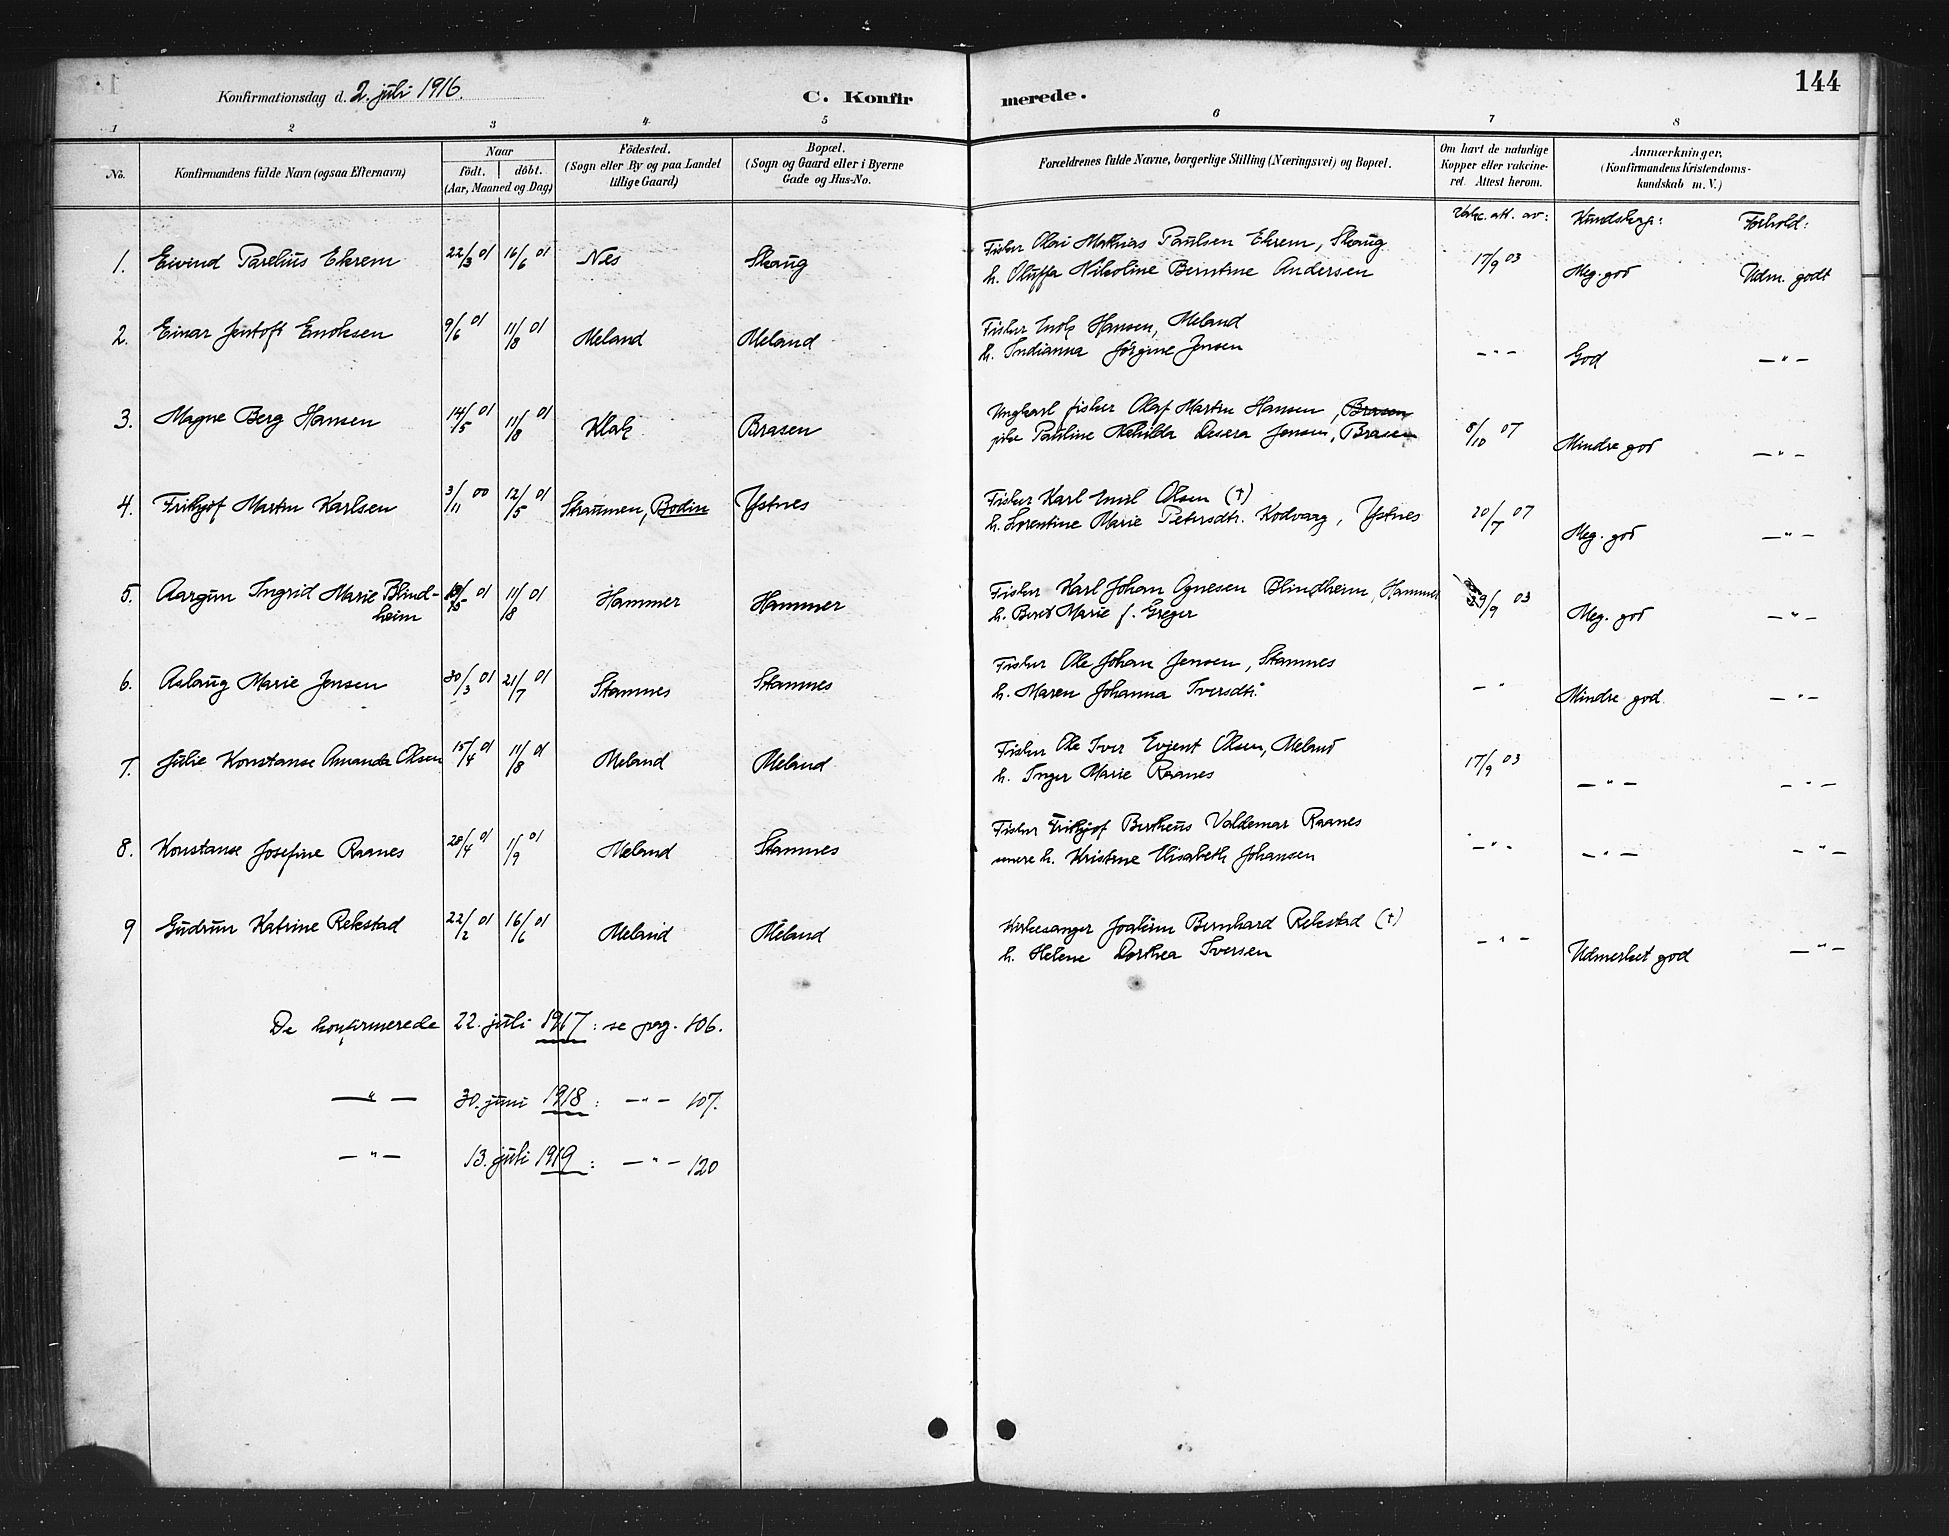 Konfirmationsdag d. 2. juli 1916.
C. Konfir
merede.
144
1 2 3 4 5 6 7 8
No.
Konfirmandens fulde Navn (ogsaa Efternavn)
Naar
födt. | döbt.
(Aar, Maaned og Dag)
Födested.
(Sogn eller By og paa Landet
tillige Gaard)
Bopæl.
(Sogn og Gaard eller i Byerne
Gade og Hus-No.
Forældrenes fulde Navne, borgerlige Stilling (Næringsvei) og Bopæl.
Om havt de naturlige
Kopper eller vakcine-
ret. Attest herom.
Anmærkninger.
(Konfirmandens Kristendoms-
kundskab m. V.)
Vakc. att. av: Kundskap: Forhold:
1. Eivind Parelius Ekrem 22/3 01 16/6 01 Nes Skaug
Fisker Olai Mathias Paulsen Ekrem, Skaug
h. Oluffa Nikoline Berntine Andersen 17/9 03 Meg. god Udm. godt
2. Einar Jentoft Enoksen 9/6 01 11/8 01 Meland Meland
Fisker Enok Hansen, Meland
h. Indianna Jörgine Jensen — " — God — " —
3. Magne Berg Hansen 14/5 01 11/8 01 Klak Brasen
Ungkarl fisker Olaf Martin Hansen, Brasen
pike Pauline Mathilda Desera Jensen, Brasen 8/10 07 Mindre god — " —
4. Frithjof Martin Karlsen 3/11 00 12/5 01 Straumen, Bodin Ystnes
Fisker Karl Emil Olsen (†)
h. Lorentine Marie Petersdtr. Kodvaag, Ystnes 20/7 07 Meg. god — " —
5. Aargun Ingrid Marie Blind-
heim /5 01 11/8 01 Hammer Hammer
Fisker Karl Johan Agnesen Blindheim, Hammer
h. Berit Marie f. Greger 29/9 03 Meg. god — " —
6. Aslaug Marie Jensen 30/3 01 21/7 01 Stamnes Stamnes
Fisker Ole Johan Jensen, Stamnes
h. Maren Johanna Iversdtr. — " Mindre god — " —
7. Julie Konstanse Amanda Olsen 15/4 01 11/8 01 Meland Meland
Fisker Ole Iver Evjent Olsen, Meland
h. Inger Marie Raanes 17/9 03 — " — — " —
8. Konstanse Josefine Raanes 28/4 01 1/9 01 Meland Stamnes
Fisker Frithjof Bertheus Valdemar Raanes
senere h. Kristine Elisabeth Johansen — " — — " — — " —
9 Gudrun Katrine Rekstad 22/2 01 16/6 01 Meland Meland
Kirkesanger Joakim Bernhard Rekstad (†)
h. Helene Dorthea Iversen — " — Udmerket god — " —
De konfirmerede 22. juli 1917: se pag. 106.
— " — 30. juni 1918: — " — 107.
— " — 13. juli 1919: — " — 120